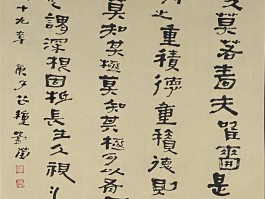 莫若嗇夫唯嗇是
之重積德重積德則
莫知其極莫知其極可以有
謂深根固柢長生久視之
十九章 芒種